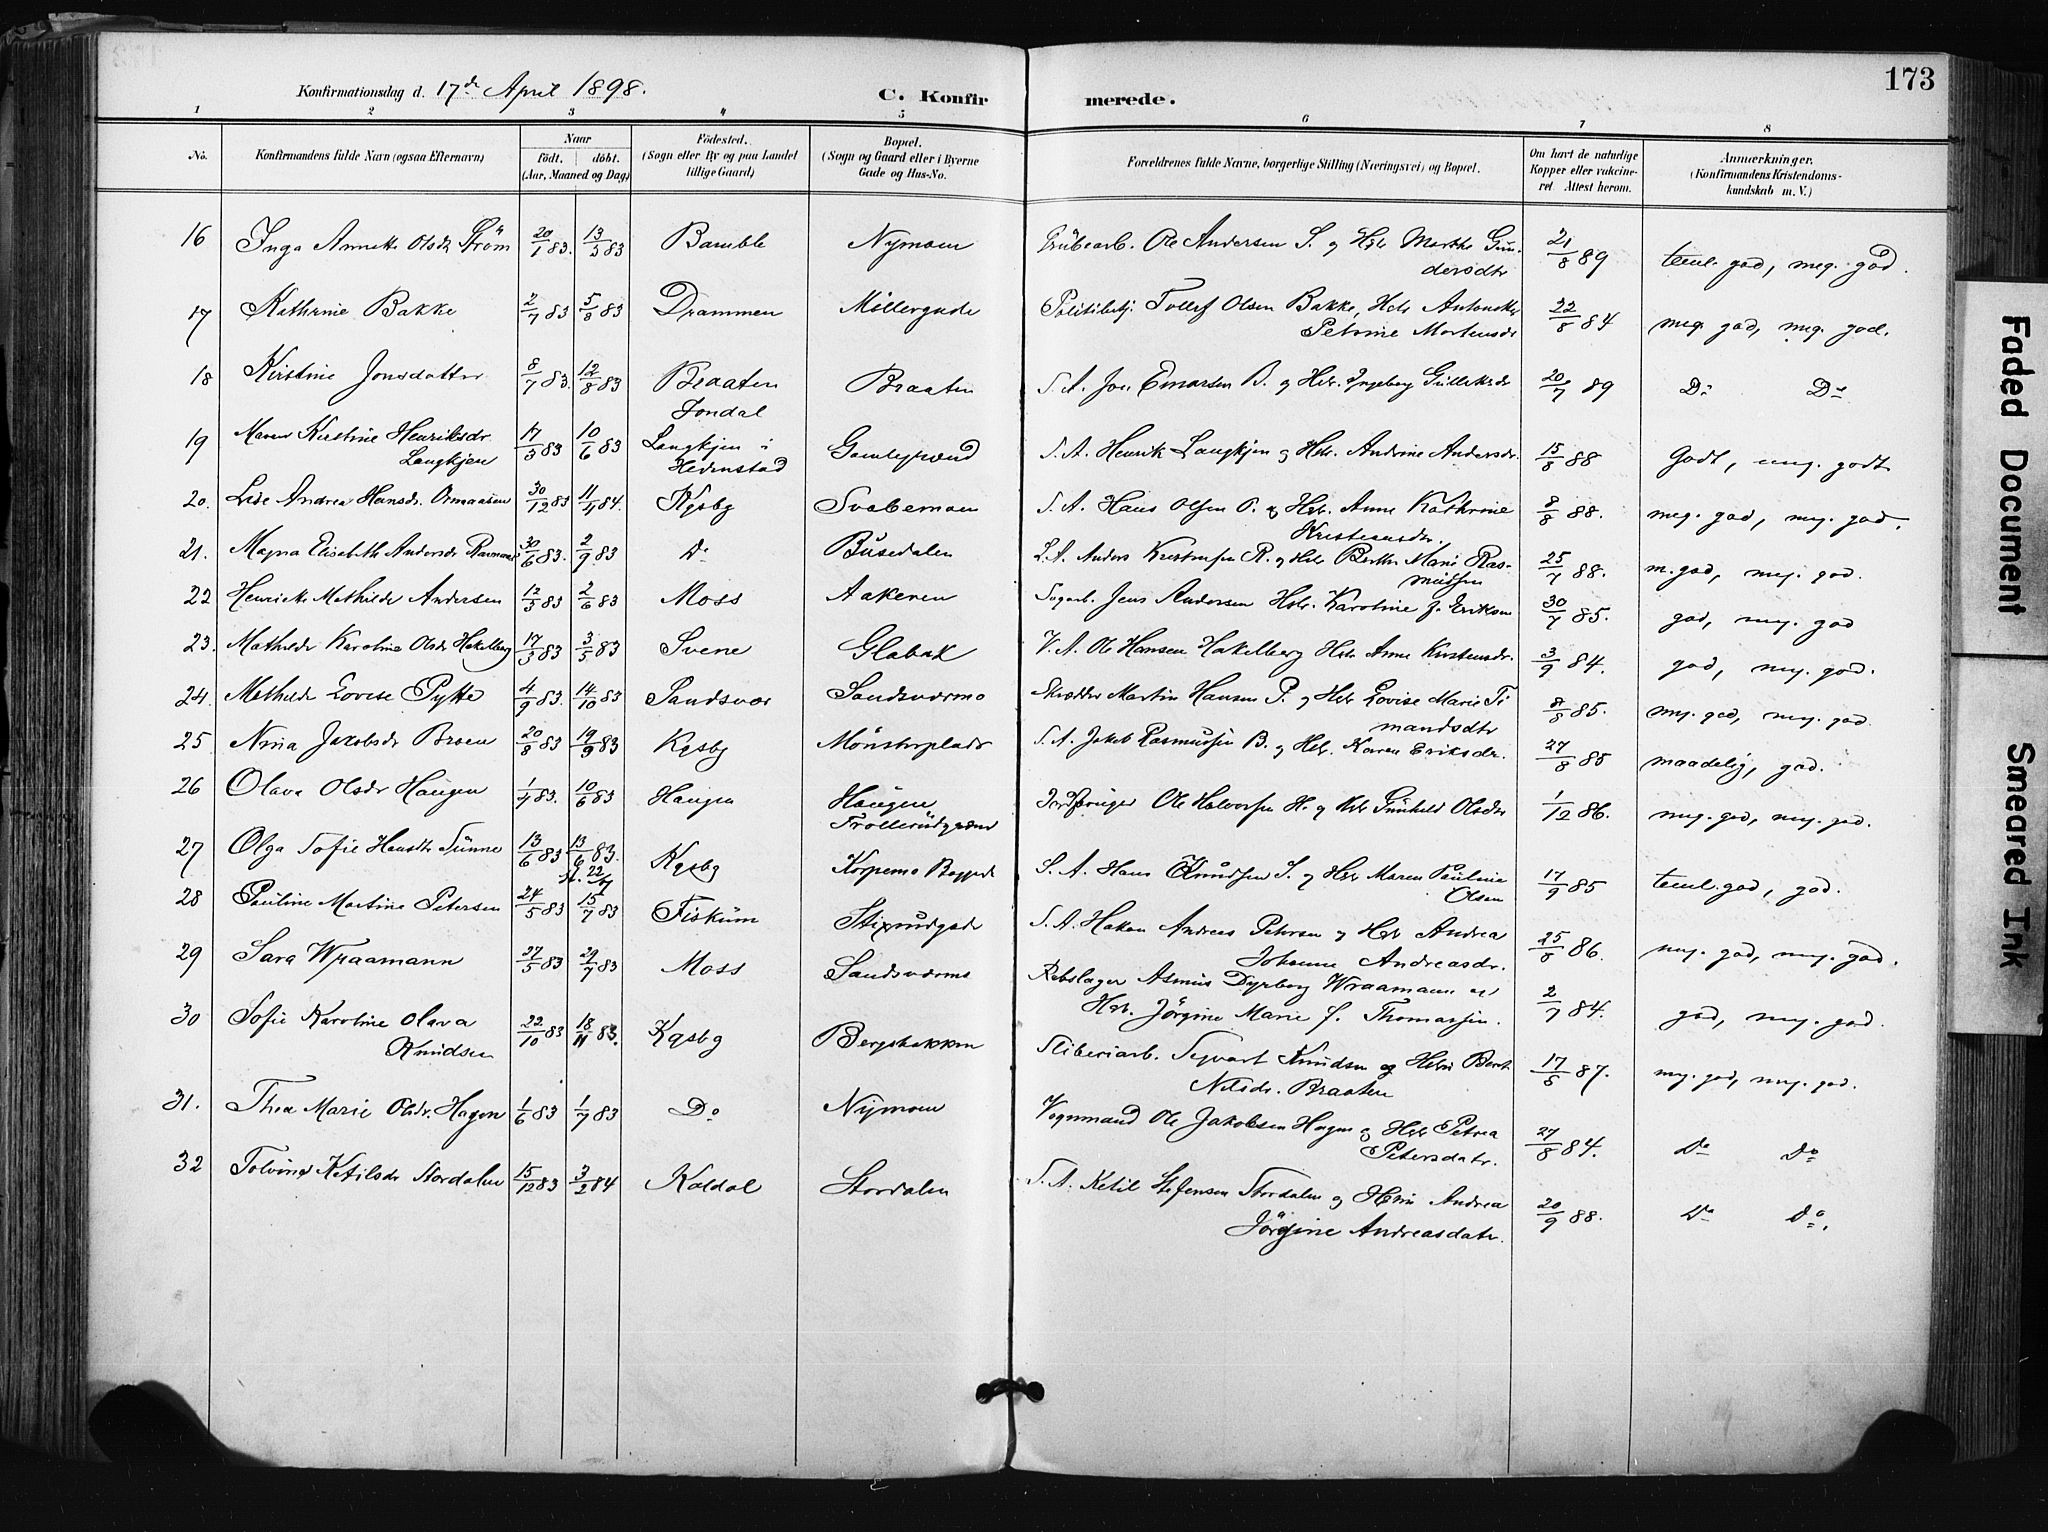 173
Konfirmationsdag d. 17de April 1898.
C. Konfirmerede.
1 2 3 4 5 6 7 8
No.
Konfirmandens fulde Navn (ogsaa Efternavn)
Naar
födt. döbt.
(Aar, Maaned og Dag)
Födested.
(Sogn eller By og paa Landet
tillige Gaard)
Bopæl.
(Sogn og Gaard eller i Byerne
Gade og Hus-No.
Forældrenes fulde Navne, borgerlige Stilling (Næringsvei) og Bopæl.
Om havt de naturlige
Kopper eller vakcine-
ret. Attest herom.
Anmærkninger.
(Konfirmandens Kristendoms-
kundskab m. V.)
16 Inga Annette Olsdr Ström 20/1 83. 13/5 83 Bamble Nymoen Grübearb. Ole Andersen S. og Hstr Marthe Gun- 21/8 89 teml. god, meg. god.
dersdtr
17 Kathrine Bakke 2/7 83 5/8 83 Drammen Möllergade Politibetj. Tollef Olsen Bakke, Hstr Antonette 22/8 84 meg. god, meg. god.
Petrine Mortensdr
18 Kirstine Jonsdatter 8/7 83. 12/8 83 Braaten Braaten S. A. Jon Einarsen B. og Hstr. Ingeborg Gülleksdr 20/7 89 Do Do
Jondal
19 Maren Kirstine Henriksdr. 17/3 83 10/6 83 Langkjen i Gamlegrænd S. A. Henrik Langkjen og Hstr. Andrine Andersdr. 15/8 88 Godt, meg. godt
Langkjen Hedenstad
20. Lise Andrea Hansdr. Ormaasen 30/12 83 11/4 84. Kgsbg Svabemoen S. A. Hans Olsen O. og Hstr. Anne Kathrine 8/8 88. meg. god, meg. god.
Kristensdr.
21. Magna Elisabeth Andersdr 30/6 83. 2/9 83 Do Büsedalen S. A. Anders R. og Hstr Berthe Marie Ras- 25/7 88. m. god, meg. god.
müssen
22 Henriette Mathilde Andersen 12/5 83 2/6 83 Moss Aakeren Sagarb. Jens Andersen Hstr. Karoline f. Eriksen 30/7 85. god, meg. god
23. Mathilde Karoline Olsdr Hakelberg 17/3 83 3/5 83 Svene Glabak V. A. Ole Hansen Hakelberg Hstr Anne Kirstensdr. 3/9 84. god, meg. god.
24. Mathilde Lovise Pytte 4/9 83. 14/10 83 Sandsvær Sandsværmo Skrædder Martin Hansen P. og Hstr Lovise Marie Ti 8/8 85. meg. god, meg. god.
mandsdtr
25 Nina Jakobsdr Broen 20/8 83 19/9 83 Kgsbg Mönsterplads S. A. Jakob Rasmussen B. og Hstr. Karen Eriksdr. 27/8 85 maadelig, god.
26 Olava Olsdr Haugen 1/4 83. 10/6 83 Haugen Haugen Ole Halvorsen H. og Hstr Günhild Olsdtr 1/12 86. meg. god, meg. god.
Trollerüdgrænd
27 Olga Sofie Hansdtr Sünne 13/6 83 13/6 83. Kgsbg Korpemo S. A. Hans Knudsen S. og Hstr Maren Pauline 17/9 85 teml. god, god.
Olsen
28 Pauline Martine Petersen 24/5 83 15/7 83 Fisküm Stixrudgade S. A. Hakon Andreas Petersen og Hstr Andrea 25/8 86. meg. god, meg. god.
Johanne Andreasdr.
29 Sara Wraamann 27/5 83 29/7 83 Moss Sandsværmo Rebslager Asmus Dyrborg Wraamann og 2/7 84. god, meg. god.
Hstr. Jörgine Marie f. Thomassen.
30 Sofie Karoline Olava 22/10 83 18/11 83. Kgsbg Bergsbakken Sliberiarb. Sigvart Knudsen og Hstru Berte 17/8 87. meg. god, meg. god.
Knudsen Nilsdr. Braaten
31. Thea Marie Olsdr. Hagen 1/6 83 1/7 83 Do Nymoen Vognmand Ole Jakobsen Hagen og Hstr Petrea 27/8 84. Do Do
Petersdatr.
32 Tolvine Ketilsdr Stordalen 15/12 83 3/2 84 Koldal Stordalen S. A. Ketil Stefensen Stordalen og Hstru Andrea 20/9 88. Do Do.
Jörgine Andreasdatr.
Faded Document
Smeared Ink